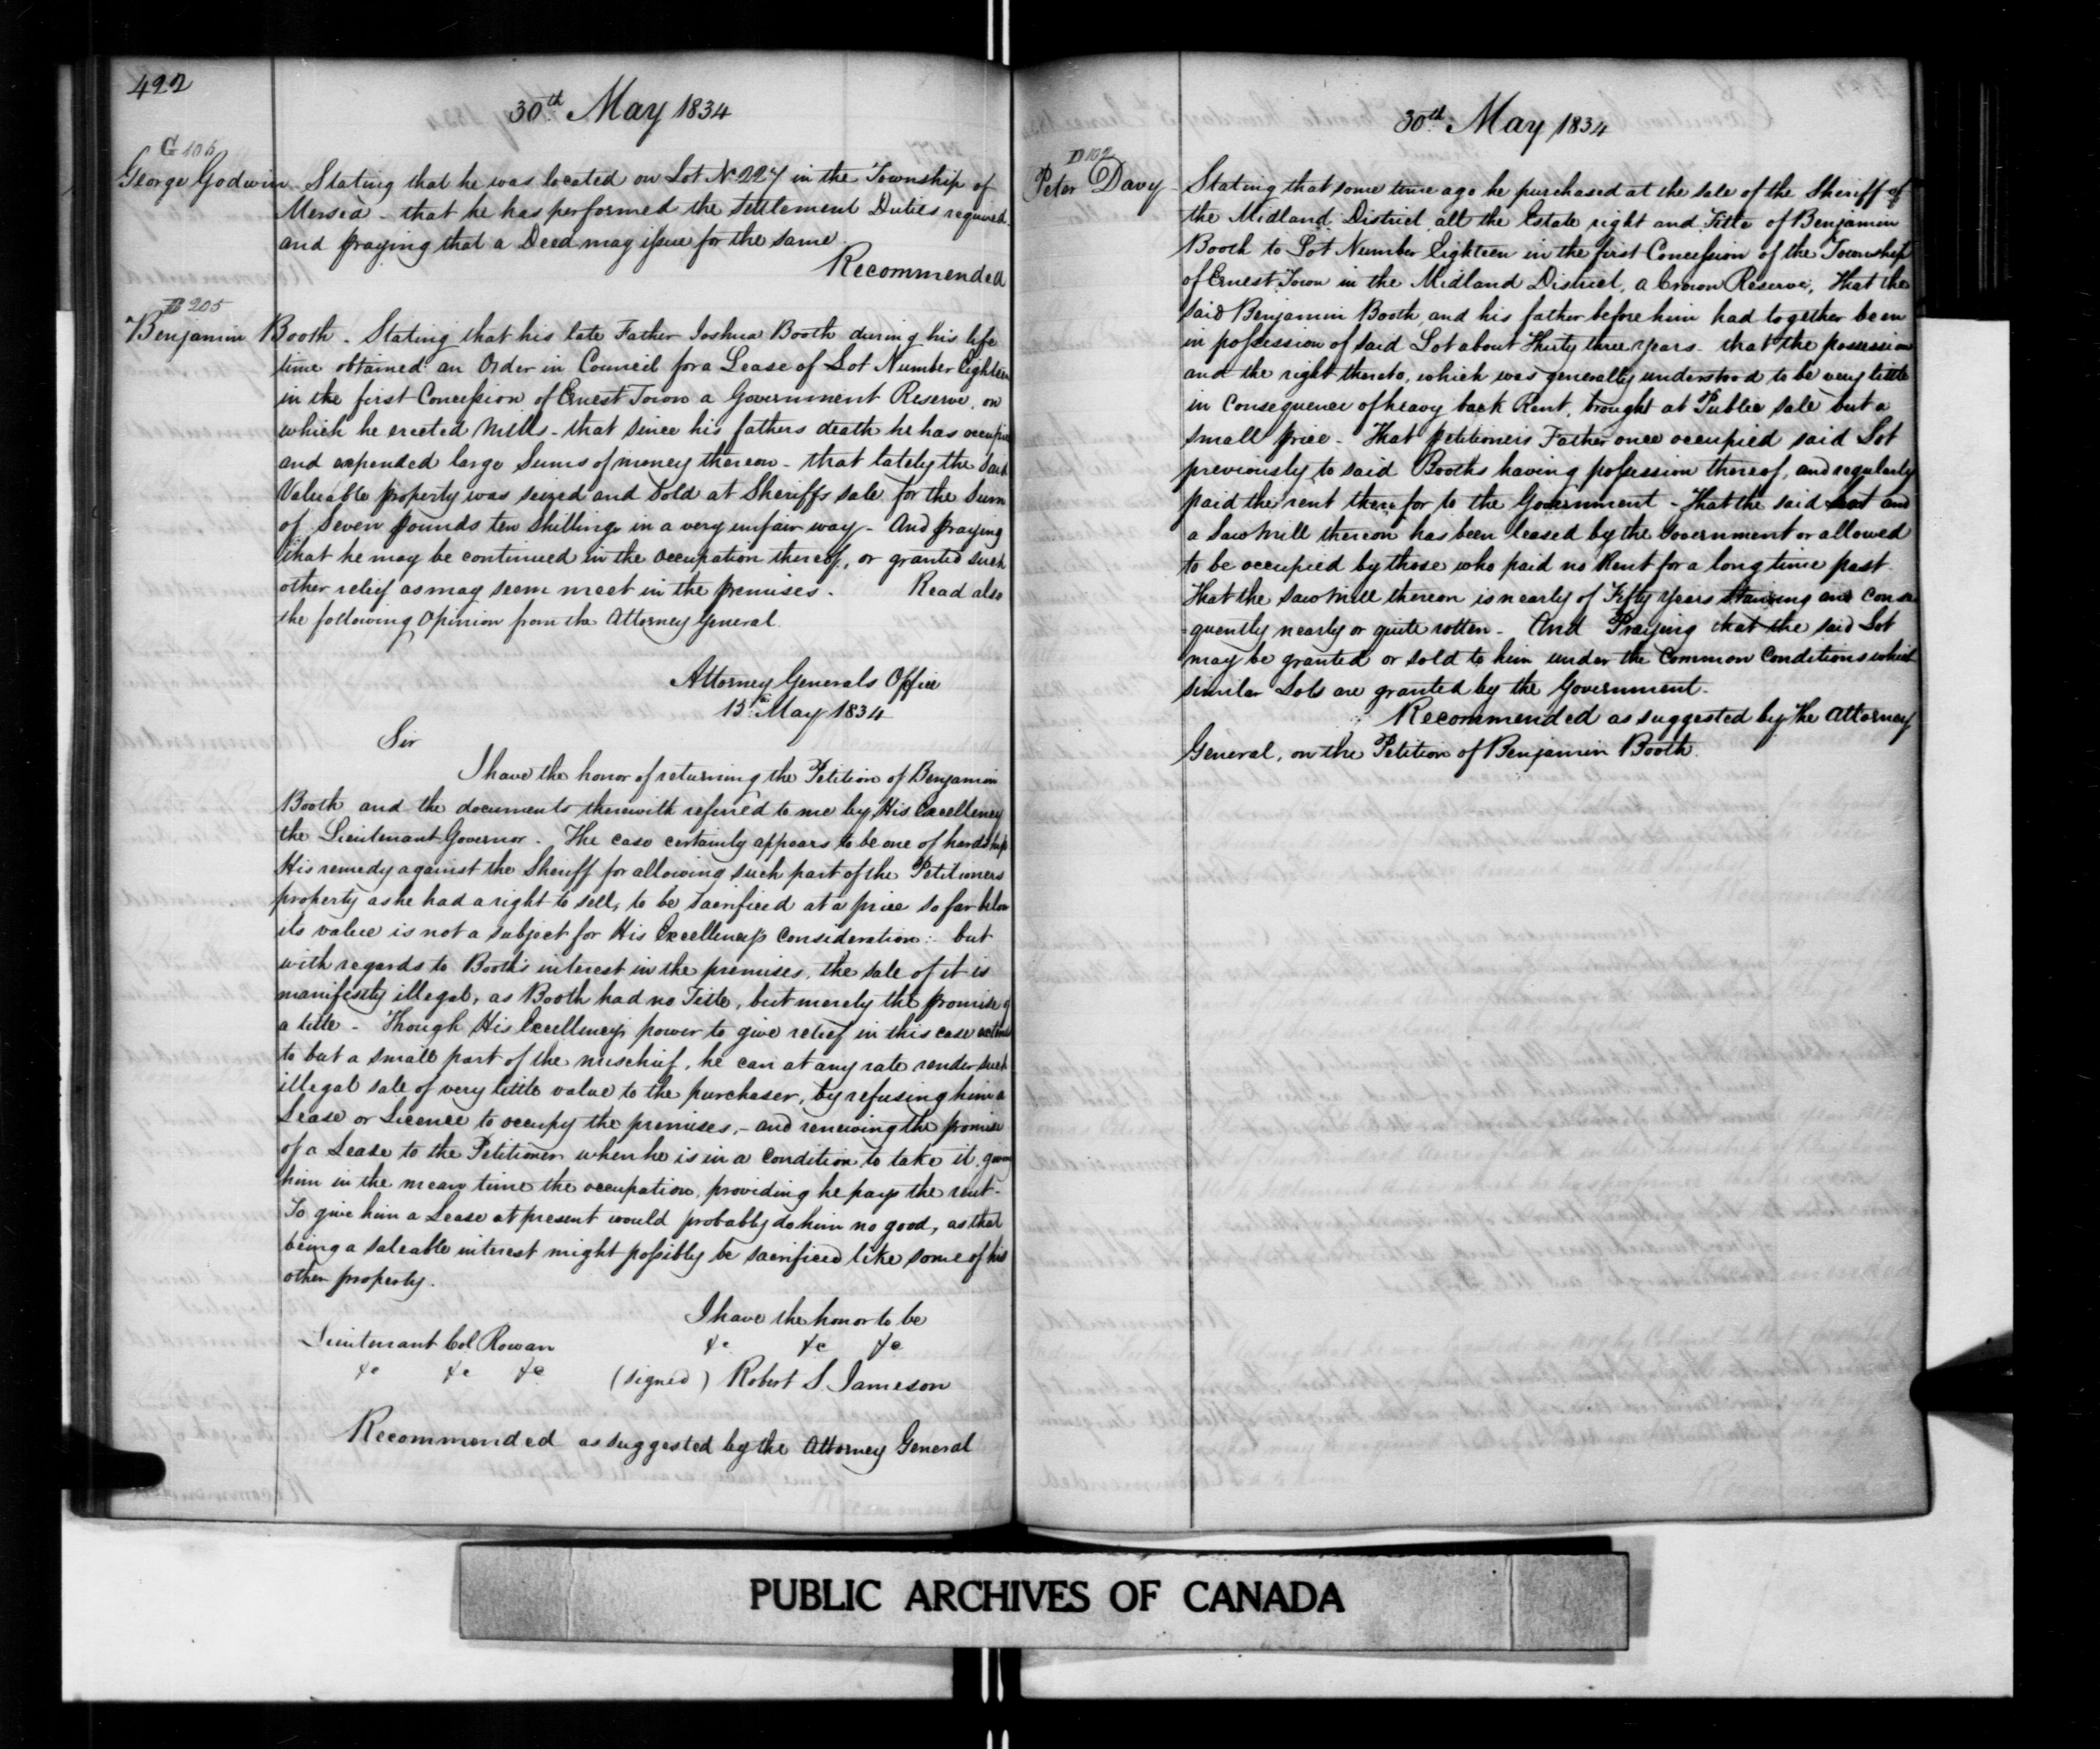 422
30th May 1834
G 106
George Godwin - Stating that he was located on Lot No 227 in the Township of
Mersea - that he has performed the settlement Duties required
and praying that a Deed may issue for the same
Recommended
B 205
Benjamin Booth - Stating that his late Father Joshua Booth during his life
time obtained an Order in Council for a Lease of Lot Number Eighteen
in the first Concession of Ernest Town a Government Reserve, on
which he erected Mills - that since his fathers death he has occupied
and expended large Sums of money thereon - that lately the said
Valuable property was seized and Sold at Sheriffs sale for the Sum
of Seven pounds ten Shillings in a very unfair way - And praying
that he may be continued in the occupation thereof, or granted such
other relief as may seem meet in the premises - Read also
the following Opinion from the Attorney General
Attorney Generals Office
May 1834
Sir
I have the honor of returning the Petition of Benjamin
Booth and the documents therewith referred to me by His Excellency
the Lieutenant Governor. The case certainly appears to be one of hardship
His remedy against the Sheriff for allowing such part of the Petitioners
property as he had a right to sell, to be sacrificed at a price so far below
its value is not a subject for His Excellency's Consideration: but
with regards to Booth's interest in the premises, the sale of it is
manifestly illegal, as Booth had no Title, but merely the promise of
a title - Though His Excellency's power to give relief in this case extends
to but a small part of the mischief, he can at any rate render such
illegal sale of very little value to the purchaser, by refusing him a
Lease or Licence to occupy the premises, - and renewing the promise
of a Lease to the Petitioner when he is in a Condition to take it, giving
him in the mean time the occupation, providing he pays the rent -
To give him a Lease at present would probably do him no good, as that
being a saleable interest might possibly be sacrificed like some of his
other property.
I have the honor to be
Lieutenant Col Rowan
&c &c &c
&c &c &c
(signed) Robert S. Jameson
Recommended as suggested by the Attorney General
30th May 1834
D 102
Peter Davy - Stating that some time ago he purchased at the sale of the Sheriff of
the Midland District all the Estate right and Title of Benjamin
Booth to Lot Number Eighteen in the first Concession of the Township
of Ernest Town in the Midland District, a Crown Reserve, That the
said Benjamin Booth and his father before him had together been
in possession of said Lot about Thirty three years - that the possession
and the right thereto, which was generally understood to be very little
in Consequence of heavy back Rent, brought at Public sale but a
small price - That petitioners Father once occupied said Lot
previously to said Booths having possession thereof, and regularly
paid the rent therefor to the Government - That the said Lot and
a Saw Mill thereon has been leased by the Government or allowed
to be occupied by those who paid no Rent for a long time past
That the Saw Mill thereon is nearly of Fifty years standing and conse
-quently nearly or quite rotten - And Praying that the said Lot
may be granted or sold to him under the Common Conditions which
similar Lots are granted by the Government -
Recommended as suggested by the Attorney
General, on the Petition of Benjamin Booth.
PUBLIC ARCHIVES OF CANADA